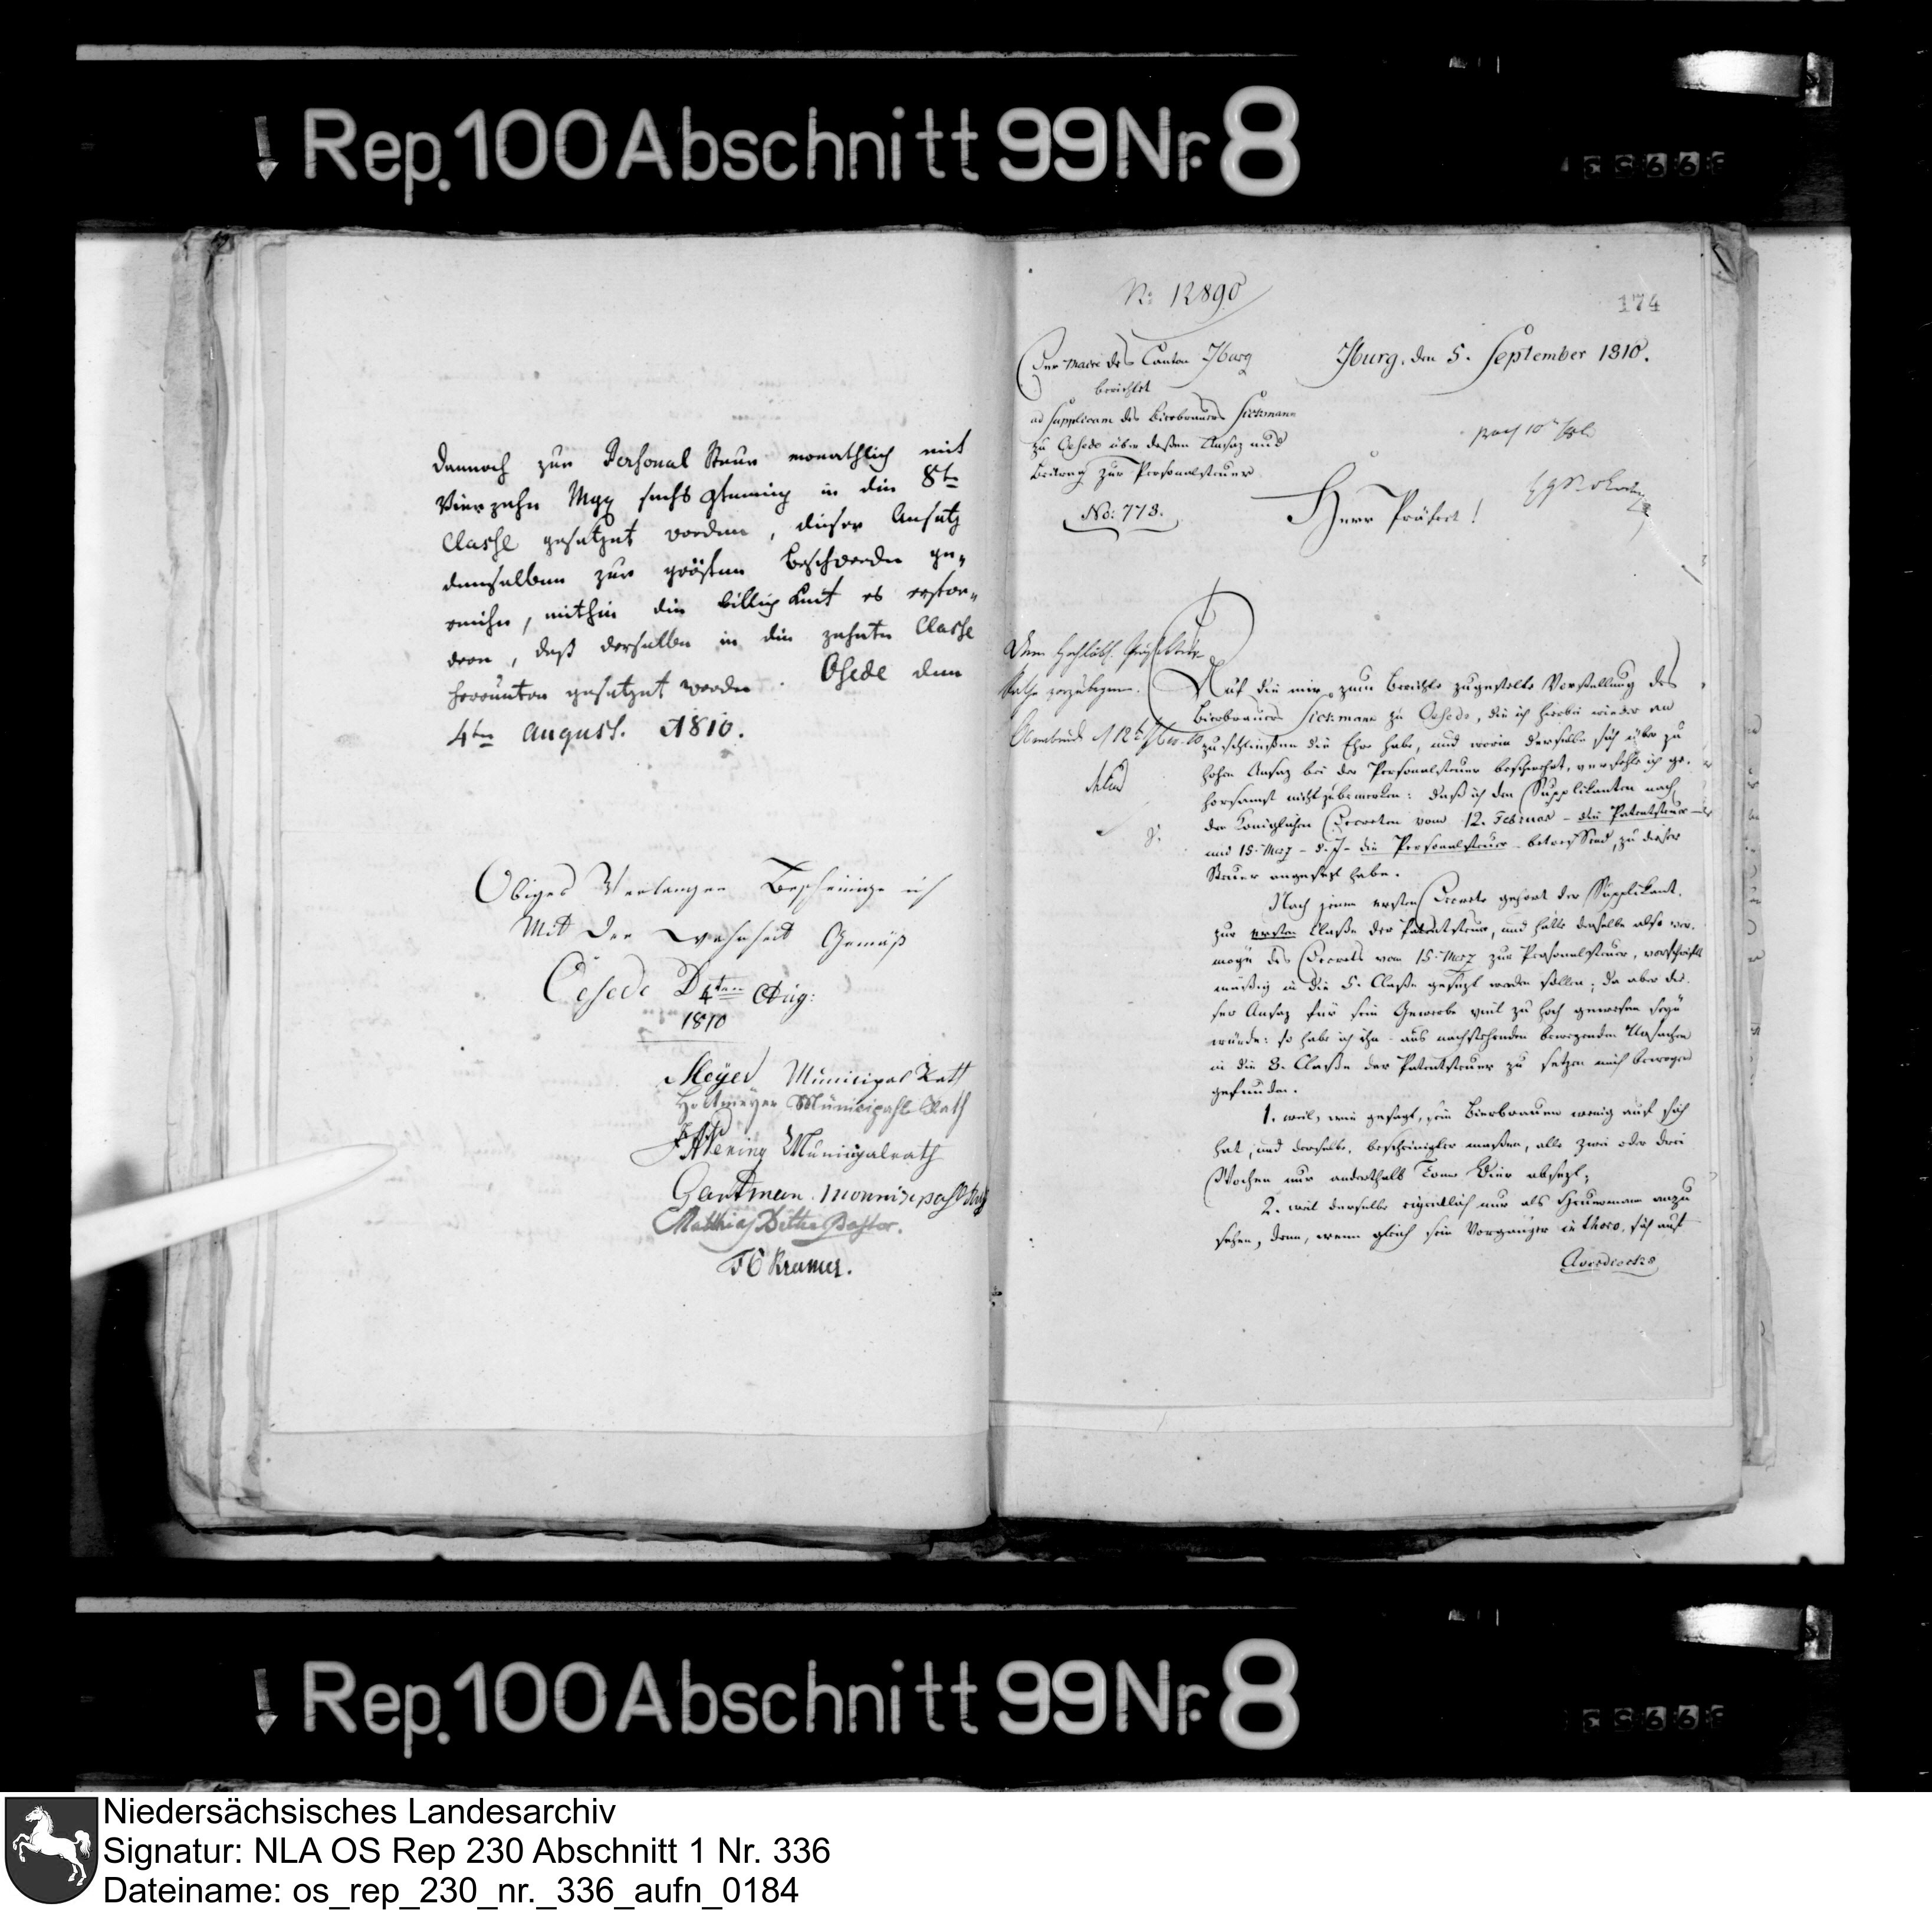 Rep. 100 Abschnitt 99 Nr. 8
dennoch zur Personal Steur monathlich mit
Vierzehn Mgg sechs Pfennig in die 8te
Classe gesetzet worden, dieser Ansatz
demselben zur größten Beschwerde ge„
reichn, mithin die billigkeit es erfor„
dern, daß derselbe in die zehnte Classe
herunter gesetzet werde. Osede den
4ten August. 1810.
Obiges Verlangen Bescheinige ich
Mit der wahrheit Gemäß
Oesede D 4ten Aug:
1810
Meyer Municipal Rath
Holtmeyer Municipahl Rath
Municipalrath
Gartman
Matthias Pastor.
Kramer.
No: 12890
174
Der Maire des Canton Iburg
berichtet
ad Supplicam des Bierbrauers Sickmann
zu Oesede über deßen Ansaz und
Beitrag zur Personalsteuer
No: 773.
Iburg, den 5. September 1810.
Herr Präfect!
Dem Hochlöbl. Präfektur-
Rathe vorzulegen.
Osnabrück d 12t
Auf die mir zum Berichte zugestellte Vorstellung des
Bierbrauers Sickmann zu Oesede, die ich hierbei wieder an
zuschließen die Ehre habe, und worin derselbe sich über zu
hohen Ansaz bei der Personalsteuer beschwehrt, verfehle ich ge-
horsamst nicht zu bemerken: daß ich den Supplikanten nach
den Königlichen Decreten vom 12. Februar – die Patentsteuer –
und 15. Merz – d. J – die Personalsteuer – betreffend, zu dieser
Steuer angesezt habe.
Nach jenem ersten Decrete gehört der Supplikant.
zur ersten Claße der Patentsteuer, und hätte derselbe also ver-
möge des Decrets vom 15. Merz zur Personalsteuer, vorschrifts
mäßig in die 5. Claße gesezt werden sollen; da aber die-
ser Ansaz für sein Gewerbe viel zu hoch gewesen seyn
würde: so habe ich ihn - aus nachstehenden bewegenden Ursachen
in die 8. Claße der Patentsteuer zu setzen mich bewogen
gefunden.
1. weil, wie gesagt, sein Bierbrauen wenig auf sich
hat, und derselbe, bescheinigter maßen, alle zwei oder drei
Wochen nur anderthalb Tonne Bier absezt;
2. weil derselbe eigentlich nur als Heuermann anzu
sehen, denn, wenn gleich sein Vorgänger in thoro, sich auf
Rep. 100 Abschnitt 99 Nr. 8
Niedersächsisches Landesarchiv
Signatur: NLA OS Rep 230 Abschnitt 1 Nr. 336
Dateiname: os_rep_230_nr._336_aufn_0184